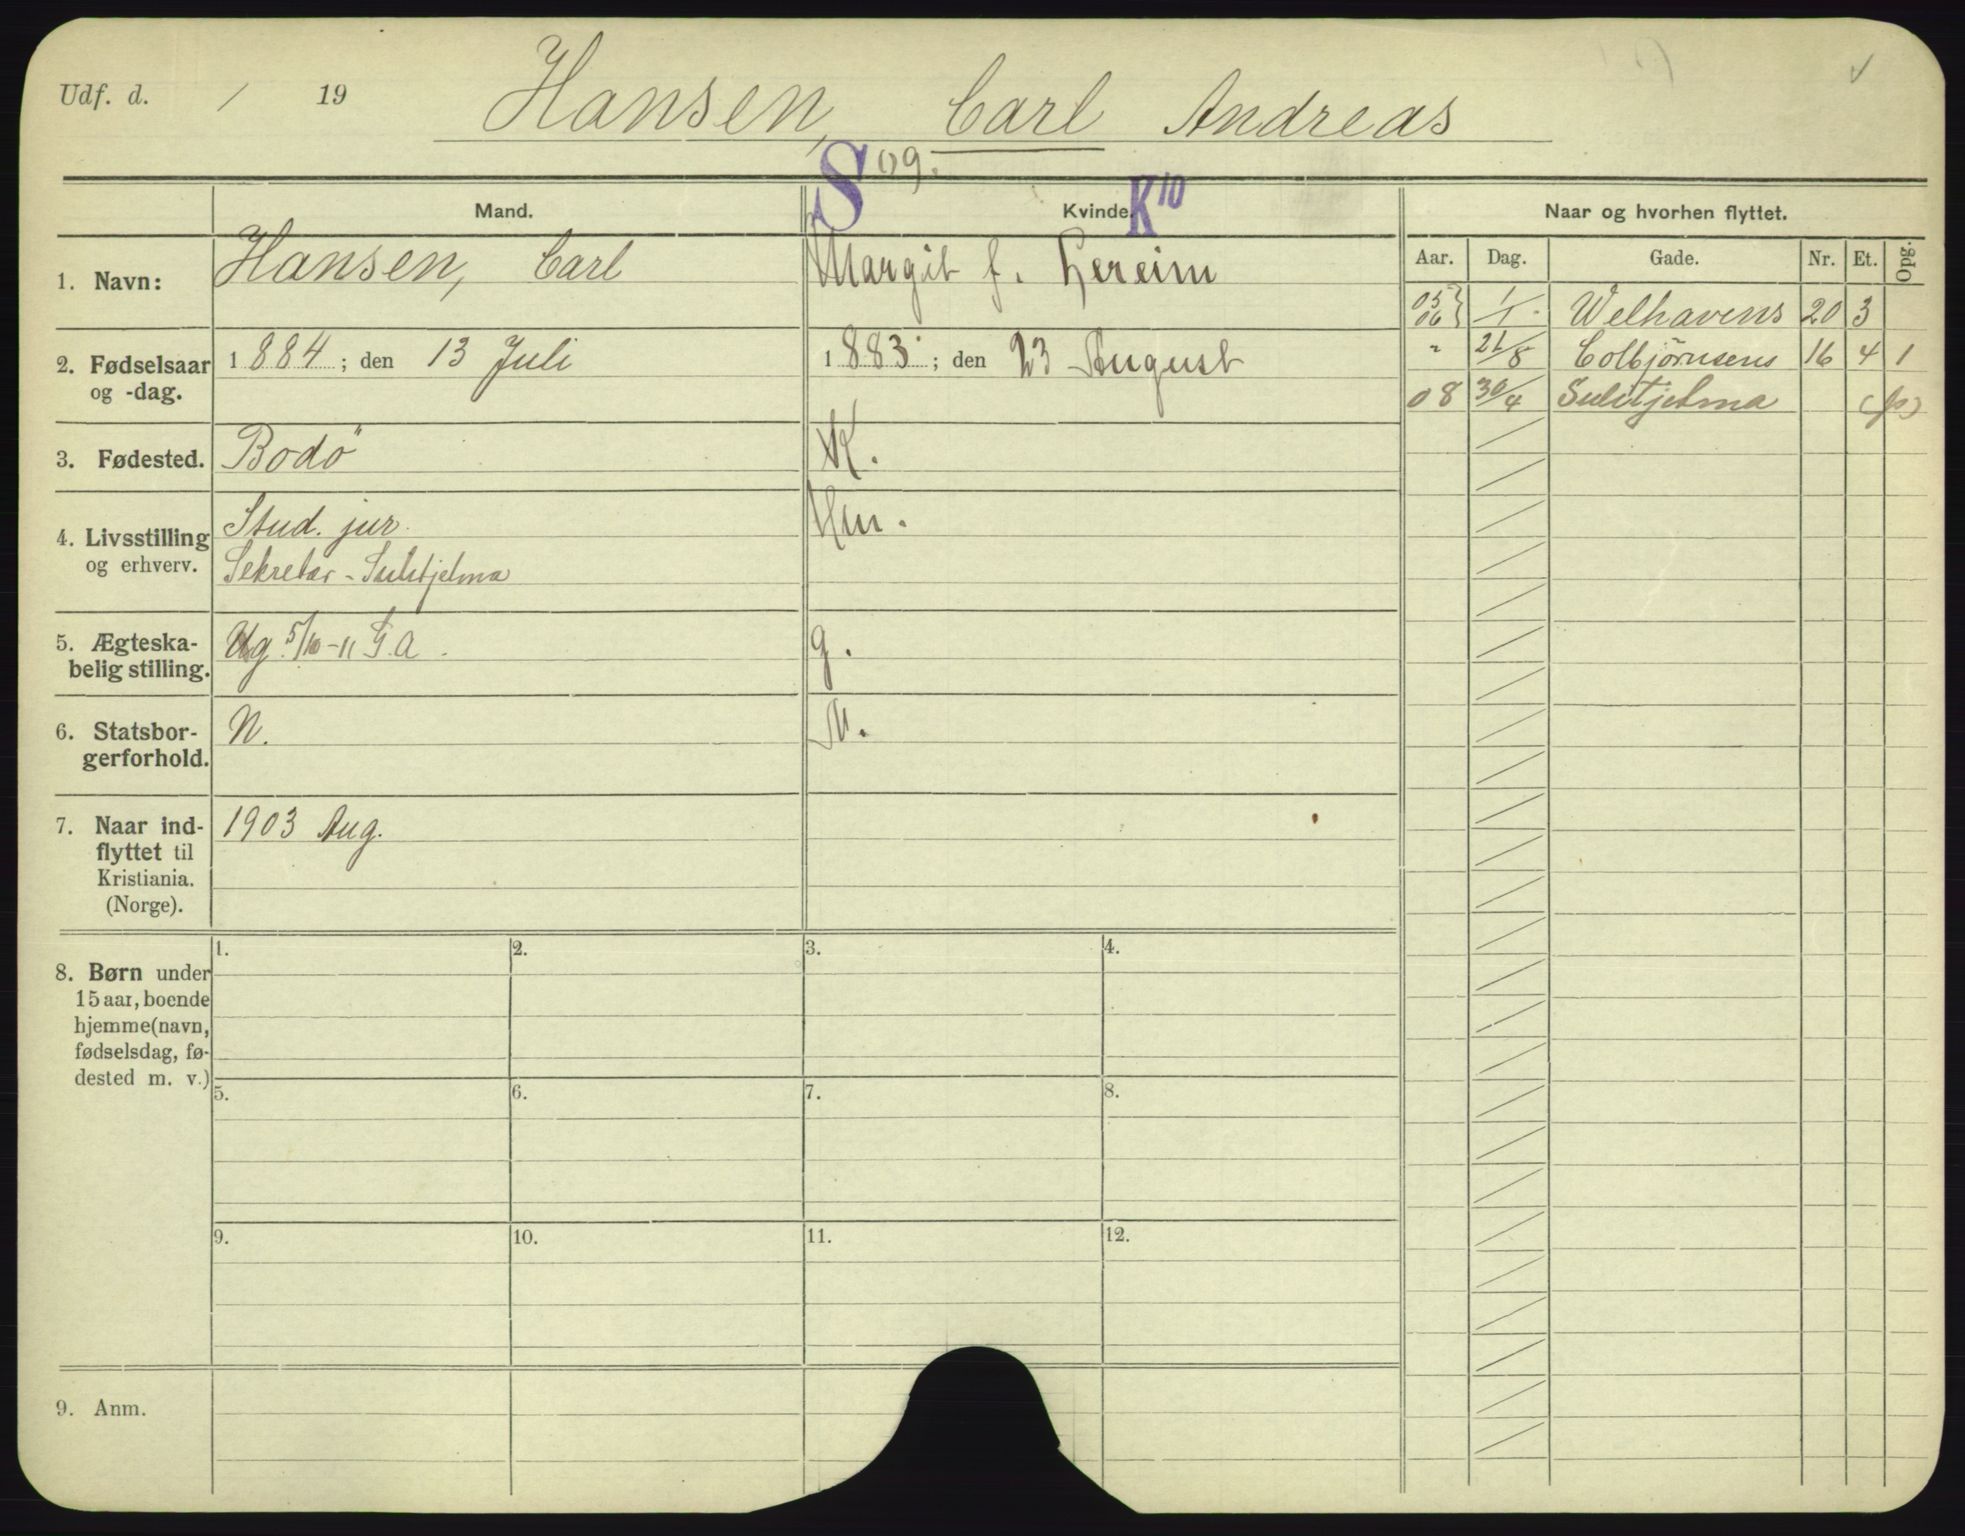 Udf. d. / 19 Hansen, Carl Andreas
S 09.
K10
Mand. Kvinde. Naar og hvorhen flyttet.
Aar. Dag. Gade. Nr. Et. Opg.
1. Navn: Hansen, Carl Margit f.
2. Fødselsaar og -dag. 1884; den 13 Juli 1883; den 23 August
3. Fødested. Bodö K.
4. Livsstilling og erhverv. Stud. jur. Hm.
Sekretær - Sulitjelma
5. Ægteska-
belig stilling. Ug 5/10-11 G.A. g.
6. Statsbor-
gerforhold. N. N.
7. Naar ind-
flyttet til
Kristiania.
(Norge). 1903 Aug.
05 06 } 1/1 Welhavens 20 3
" 21/8 Colbjørnsens 16 4 1
08 30/4 Sulitjelma
8. Børn under
15 aar, boende
hjemme (navn,
fødselsdag, fø-
dested m. v.)
1. 2. 3. 4.
5. 6. 7. 8.
9. 10. 11. 12.
9. Anm.